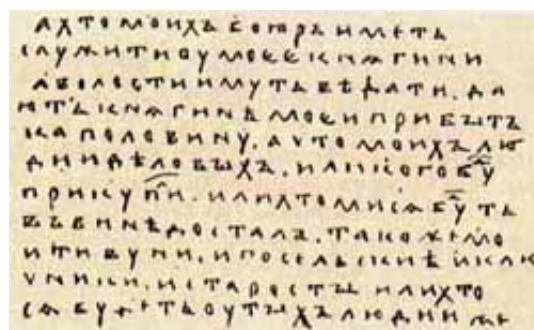 а хто моихъ боѧръ иметь
служити оу моеє кнѧгини
а волости имуть вѣдати. да
ють кнѧгинѣ моєи прибытъ
ка половину. а что моихъ лю
дии дѣловыхъ. или кого буд
прикупил. или хто ми сѧ буд ть
въ винѣ досталъ. тако же мо
и тивуни. и посельскиѣ и клю
чники. и старосты или хто
сѧ будеть оу тыхъ людии же